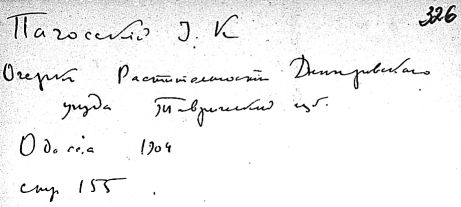 326
Пачосский І. К
Очерк Растительности Днепровского
уезда Таврической губ.
Одесса 1904
стр 155.